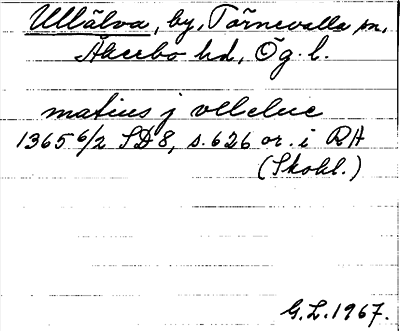 Ullälva, by, Törnevalla sn,
Åkerbo hd, Ög. l.
matius j vllelue
1365 6/2 SD 8, s. 626 or. i RA
(Skokl.)
G. L. 1967.